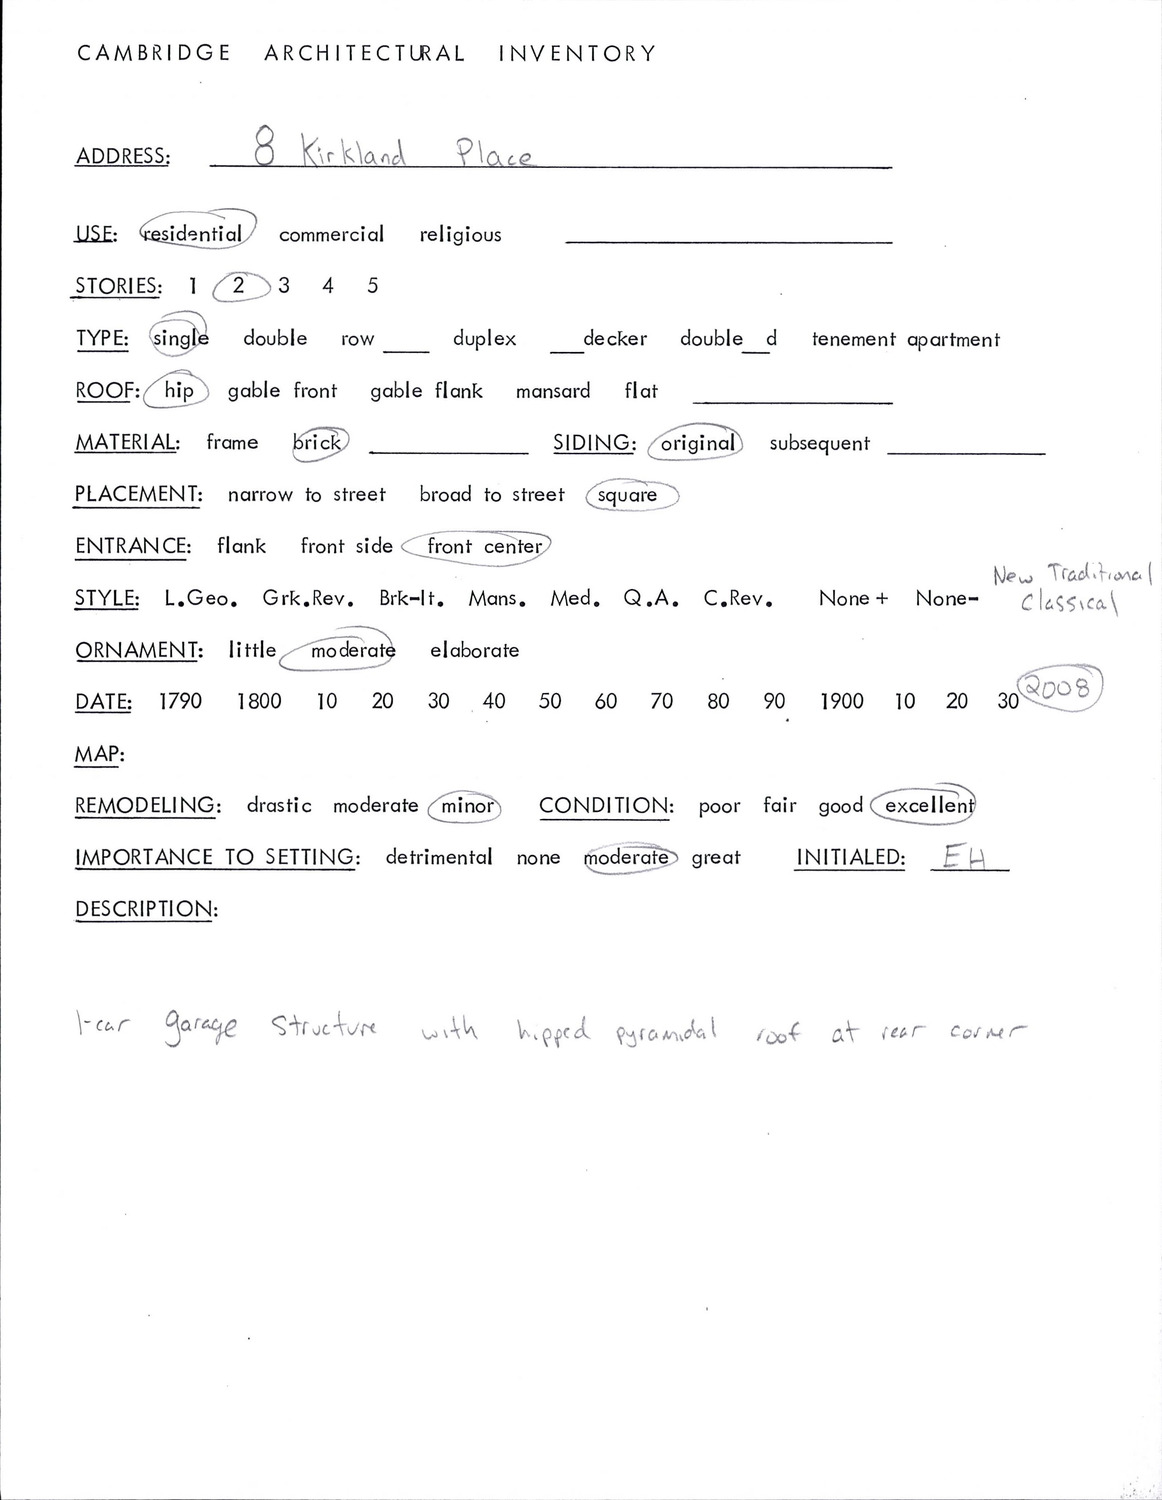 CAMBRIDGE ARCHITECTURAL INVENTORY
ADDRESS: 8 Kirkland Place
USE: residential commercial religious
STORIES: 1 2 3 4 5
TYPE: single double row ____ duplex ___decker double__d tenement apartment
ROOF: hip gable front gable flank mansard flat
MATERIAL: frame brick SIDING: original subsequent
PLACEMENT: narrow to street broad to street square
ENTRANCE: flank front side front center
STYLE: L.Geo. Grk.Rev. Brk-It. Mans. Med. Q.A. C.Rev. None+ None- New Traditional
Classical
ORNAMENT: little moderate elaborate
DATE: 1790 1800 10 20 30 40 50 60 70 80 90 1900 10 20 30 2008
MAP:
REMODELING: drastic moderate minor CONDITION: poor fair good excellent
IMPORTANCE TO SETTING: detrimental none moderate great INITIALED: EH
DESCRIPTION:
1-car garage structure with hipped pyramidal roof at rear corner